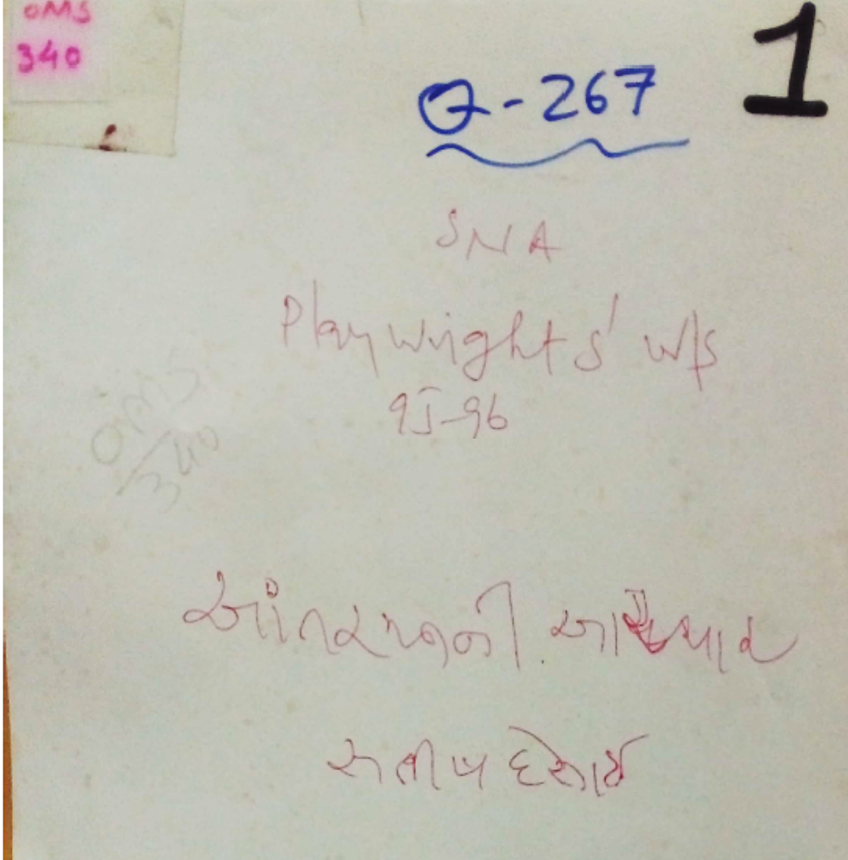 OMS
340
1
Q-267
SNA
Playwrights' w/s
95-96
OMS
340
આંતરમનની આરપાર
સતીષ દેસાઈ